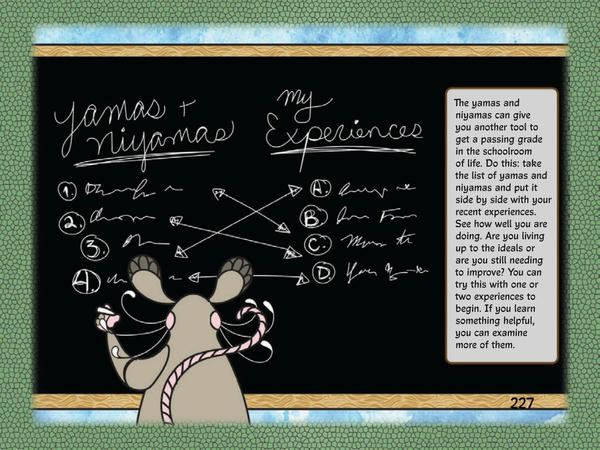 yamas +
niyamas
my
Experiences
1.
2.
3.
4.
A.
B
C.
D
The yamas and
niyamas can give
you another tool to
get a passing grade
in the schoolroom
of life. Do this: take
the list of yamas and
niyamas and put it
side by side with your
recent experiences.
See how well you are
doing. Are you living
up to the ideals or
are you still needing
to improve? You can
try this with one or
two experiences to
begin. If you learn
something helpful,
you can examine
more of them.
227